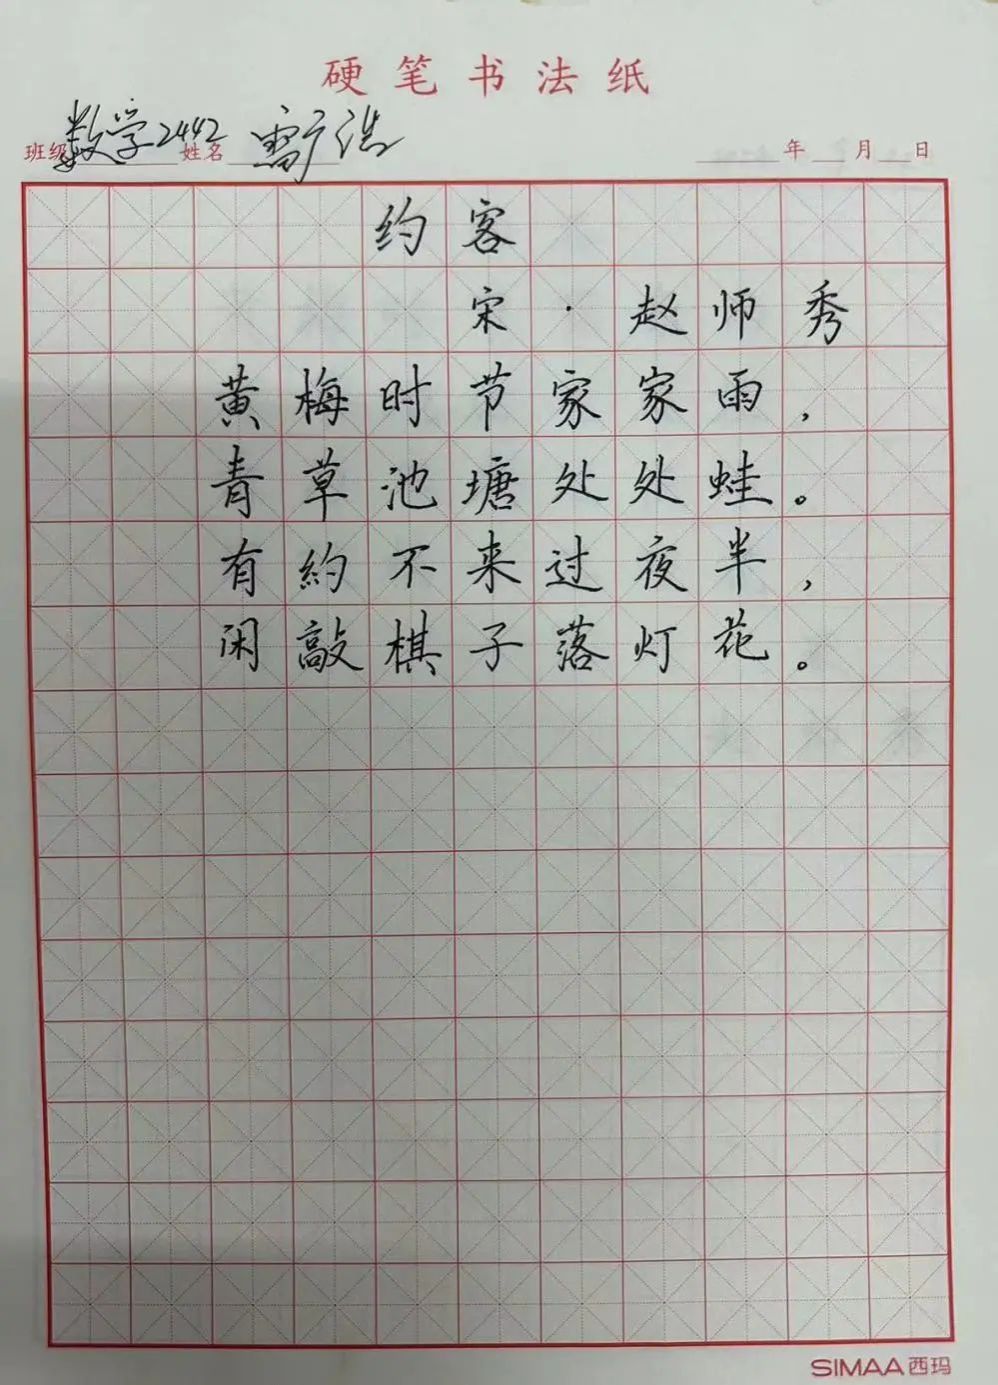 硬笔书法纸
班级 数学2442 姓名 雷广浩 年 月 日
约客
宋·赵师秀
黄梅时节家家雨，
青草池塘处处蛙。
有約不来过夜半，
闲敲棋子落灯花。
SIMAA西玛